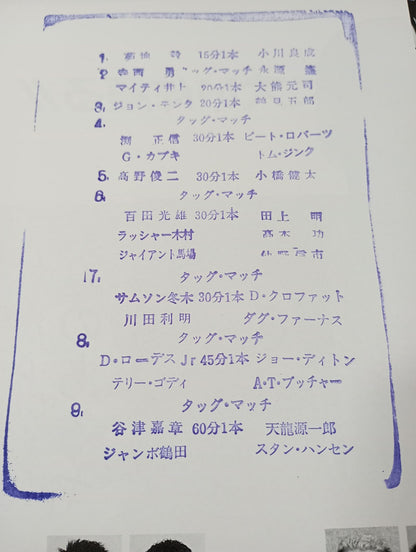 1. 菊地 毅 15分1本 小川良成
2. 寺西 勇 タッグ・マッチ 永源 遙
マイティ井上 20分1本 大熊元司
3. ジョン・テンタ 20分1本 鶴見五郎
4. タッグ・マッチ
渕 正信 30分1本 ピート・ロバーツ
G・カブキ トム・ジンク
5. 高野俊二 30分1本 小橋健太
6. タッグ・マッチ
百田光雄 30分1本 田上 明
ラッシャー木村 高木 功
ジャイアント馬場
17. タッグ・マッチ
サムソン冬木 30分1本 D・クロファット
川田利明 ダグ・ファーナス
8. タッグ・マッチ
D・ローデスJr 45分1本 ジョー・ディトン
テリー・ゴディ A・T・ブッチャー
9. タッグ・マッチ
谷津嘉章 60分1本 天龍源一郎
ジャンボ鶴田 スタン・ハンセン